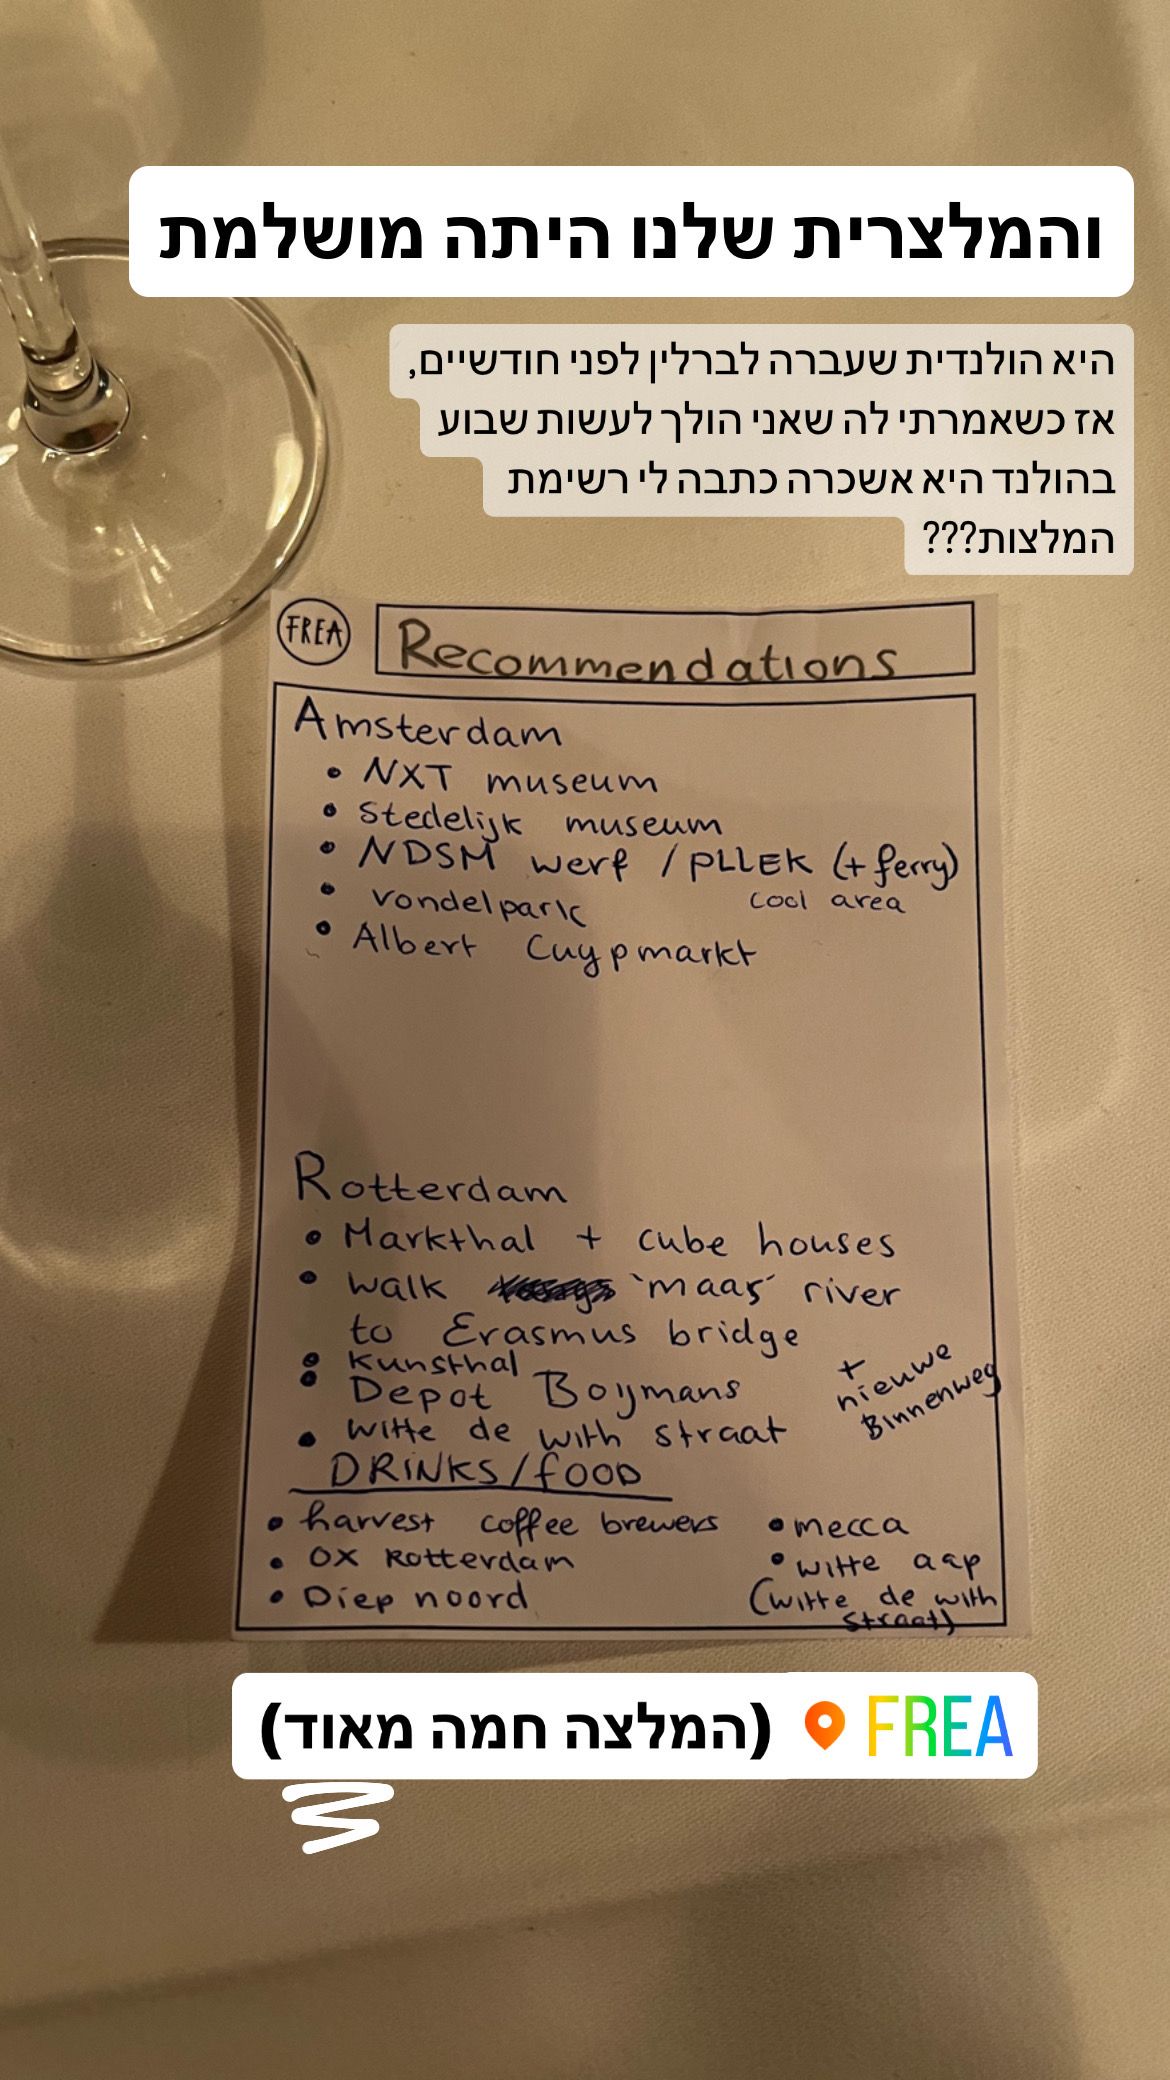 והמלצרית שלנו היתה מושלמת
היא הולנדית שעברה לברלין לפני חודשיים,
אז כשאמרתי לה שאני הולך לעשות שבוע
בהולנד היא אשכרה כתבה לי רשימת
המלצות???
FREA
Recommendations
Amsterdam
• NXT museum
• Stedelijk museum
• NDSM werf / PLLEK (+ ferry)
cool area
• vondelpark
• Albert Cuypmarkt
Rotterdam
• Markthal + cube houses
• walk 'maas' river
to Erasmus bridge
• Kunsthal
• Depot Boijmans
• witte de with straat
+ nieuwe
Binnenweg
DRINKS/FOOD
• harvest coffee brewers
• OX Rotterdam
• Diep noord
• mecca
• witte aap
(witte de with
straat)
FREA (המלצה חמה מאוד)